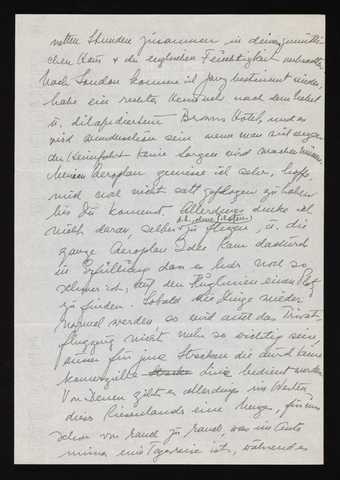 netten Stunden zusammen in deinem gemütli-
chen Haus & der englischen Feuchtigkeit verbrachten.
Nach London komme ich ganz bestimmt wieder,
habe ein rechtes Heimweh nach dem Nebel
u. dilapidiertem Browns Hotel, und es
wird wunderschön sein wenn man sich wegen
der Heimfahrt keine Sorgen wird machen müssen.
Meinen Aeroplan geniesse ich sehr, hoffe,
mich noch nicht satt geflogen zu haben
bis Du kommst. Allerdings denke ich
nicht daran, selbst zu fliegen, u. die
ganze Aeroplan Idee kam dadurch
in Erfüllung dass es hier noch so
schwer ist, auf den Fluglinien einen Platz
zu finden. Sobald die Dinge wieder
normal werden so wird auch das Privat-
flugzeug nicht mehr so wichtig sein,
ausser für jene Strecken die durch keine
kommerzielle Linie bedient werden.
Von denen gibt es allerdings im Westen
dieses Riesenlands eine Menge, für uns
schon von Ranch zu Ranch, was im Auto
immer eine Tagesreise ist, während es